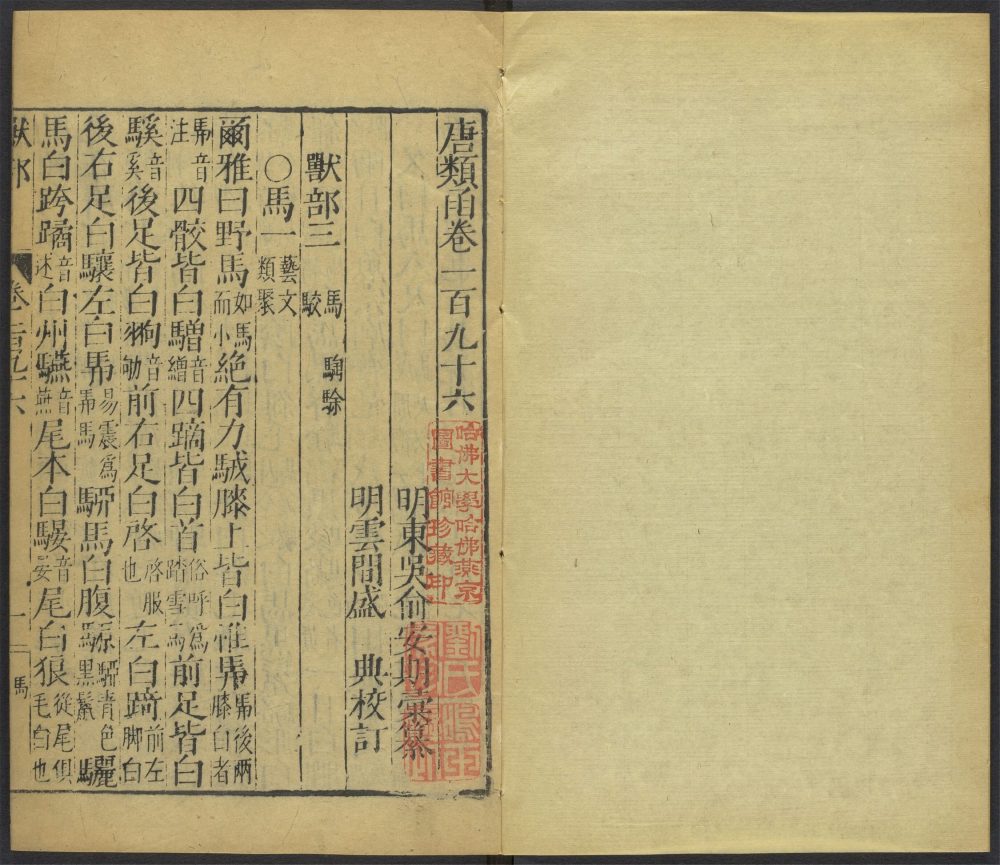 唐類函卷一百九十六
明東吳俞安期彙纂
明雲間盛 典校訂
獸部三 馬 駮 騊駼
〇馬一 藝文類聚
爾雅曰野馬如馬而小絕有力駥膝上皆白惟馵馬後兩膝白者
馵音注四骹皆白驓音繒四蹢皆白首俗呼為踏雪馬前足皆白
騱音奚後足皆白翑音劬前右足白啓啓服也左白踦前左脚白
後右足白驤左白馵易震爲馵馬騵馬白腹騵騮青色黑鬣驪
馬白跨驈音述白州驠音燕尾本白騴音晏尾白狼從尾俱毛白也
獸部 卷一百九十六 一 馬
哈佛大學哈佛燕京
圖書館珍藏印